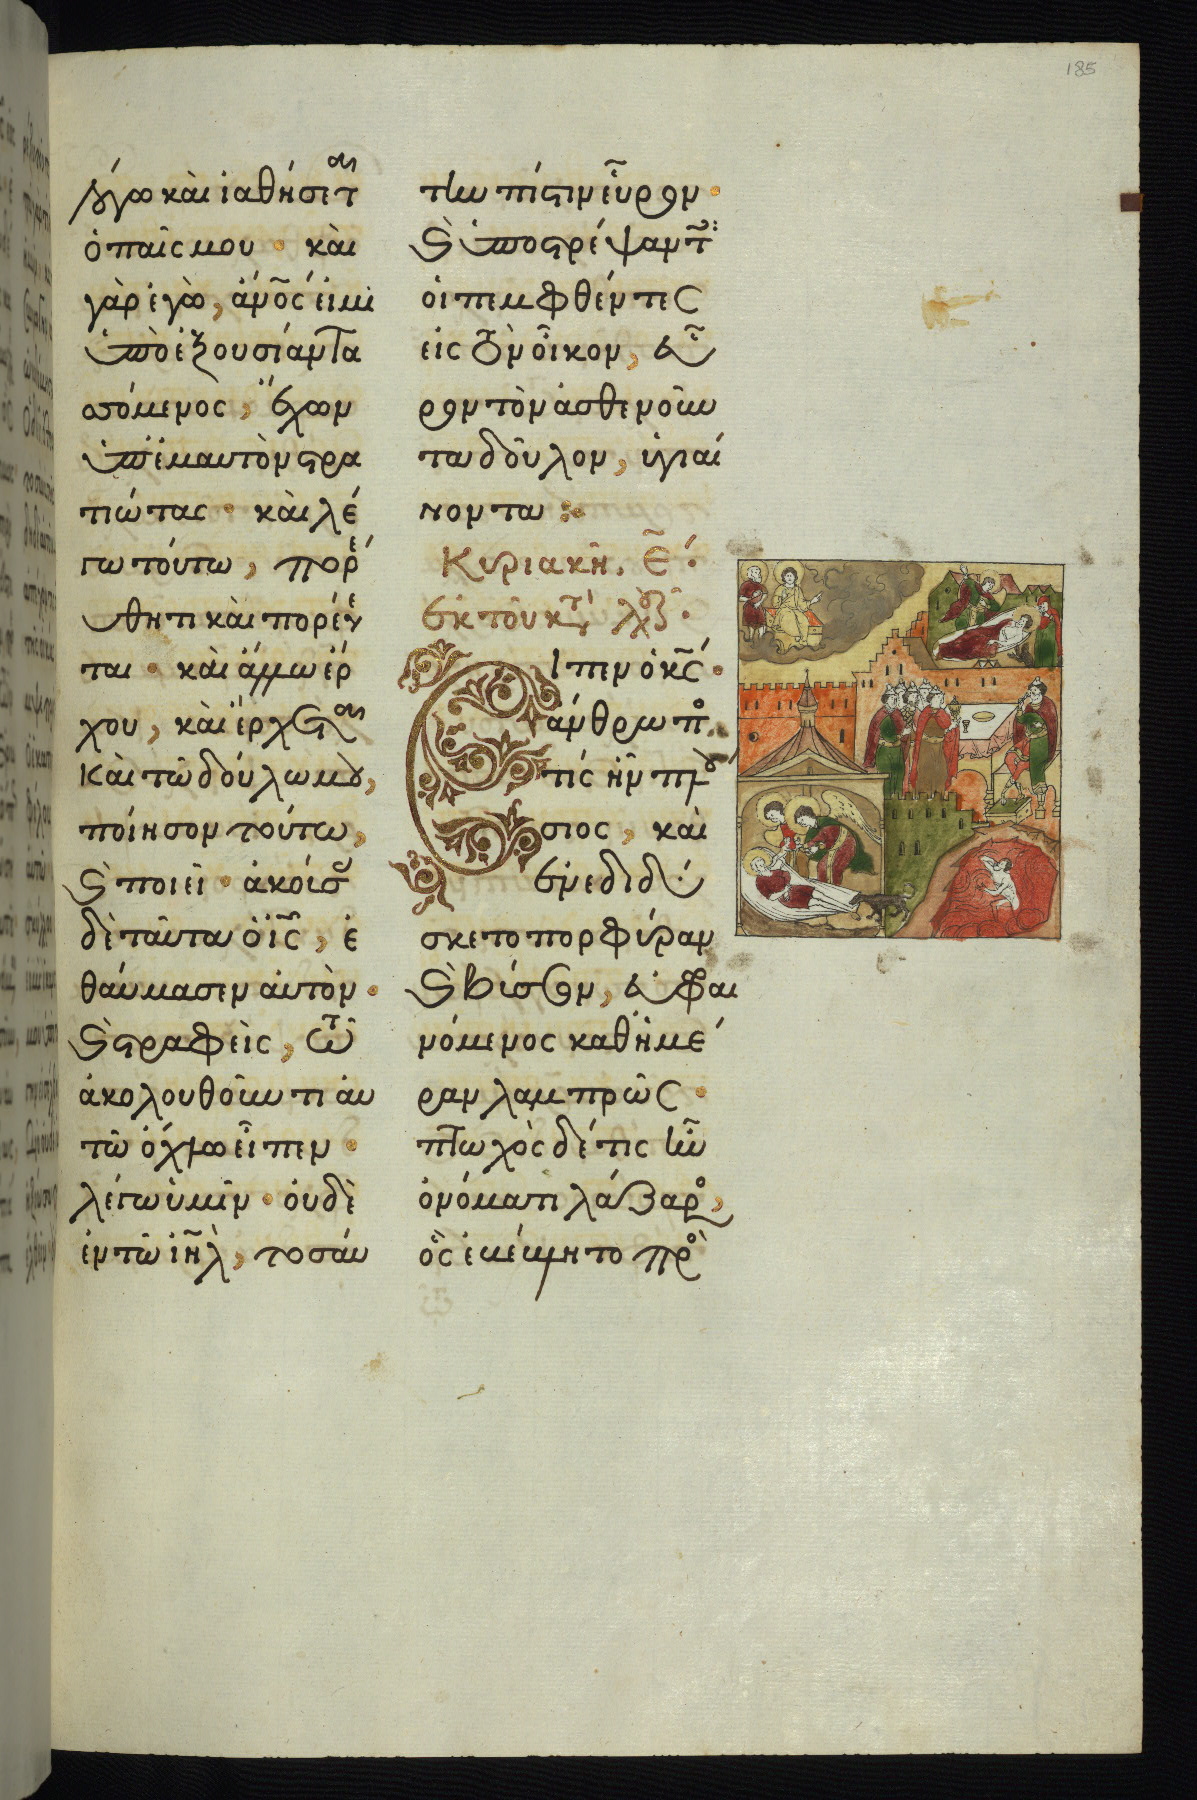 185
λόγω καὶ ἰαθήσεται
ὁ παῖς μου · καὶ
γὰρ ἐγὼ, ἄνος εἰμὶ
ὑπὸ ἐξουσίαν τα
σσόμενος, ἔχων
ὑπ' ἐμαυτὸν στρα
τιώτας · καὶ λέ
γω τούτω, πορεύ
θητι καὶ πορεύε
ται · καὶ ἄλλω ἔρ
χου, καὶ ἔρχεται
καὶ τῶ δούλω μου,
ποίησον τοῦτο,
καὶ ποιεῖ · ἀκούσας
δὲ ταῦτα ὁ ις, ἐ
θαύμασεν αὐτὸν ·
καὶ στραφεὶς, τῶ
ἀκολουθοῦντι αὐ
τῶ ὄχλω εἶπεν ·
λέγω ὑμῖν · οὐδὲ
ἐν τῶ ιηλ, τοσαύ
την πίστιν εὗρον ·
καὶ ὑποστρέψαντες
οἱ πεμφθέντες
εἰς τὸν οἶκον, εὗ
ρον τὸν ἀσθενοῦν
τα δοῦλον, ὑγιαί
νοντα :
Κυριακῆ. ε̄ ·
ἐκ τοῦ κατὰ λουκ ·
Εἶπεν ὁ κς ·
ἄνθρωπος
τὶς ἦν πλού
σιος, καὶ
ἐνεδιδύ
σκετο πορφύραν
καὶ βύσσον, εὐφραι
νόμενος καθ' ἡμέ
ραν λαμπρῶς ·
πτωχὸς δέ τις ἦν
ὀνόματι λάζαρος,
ὃς ἐβέβλητο πρὸς